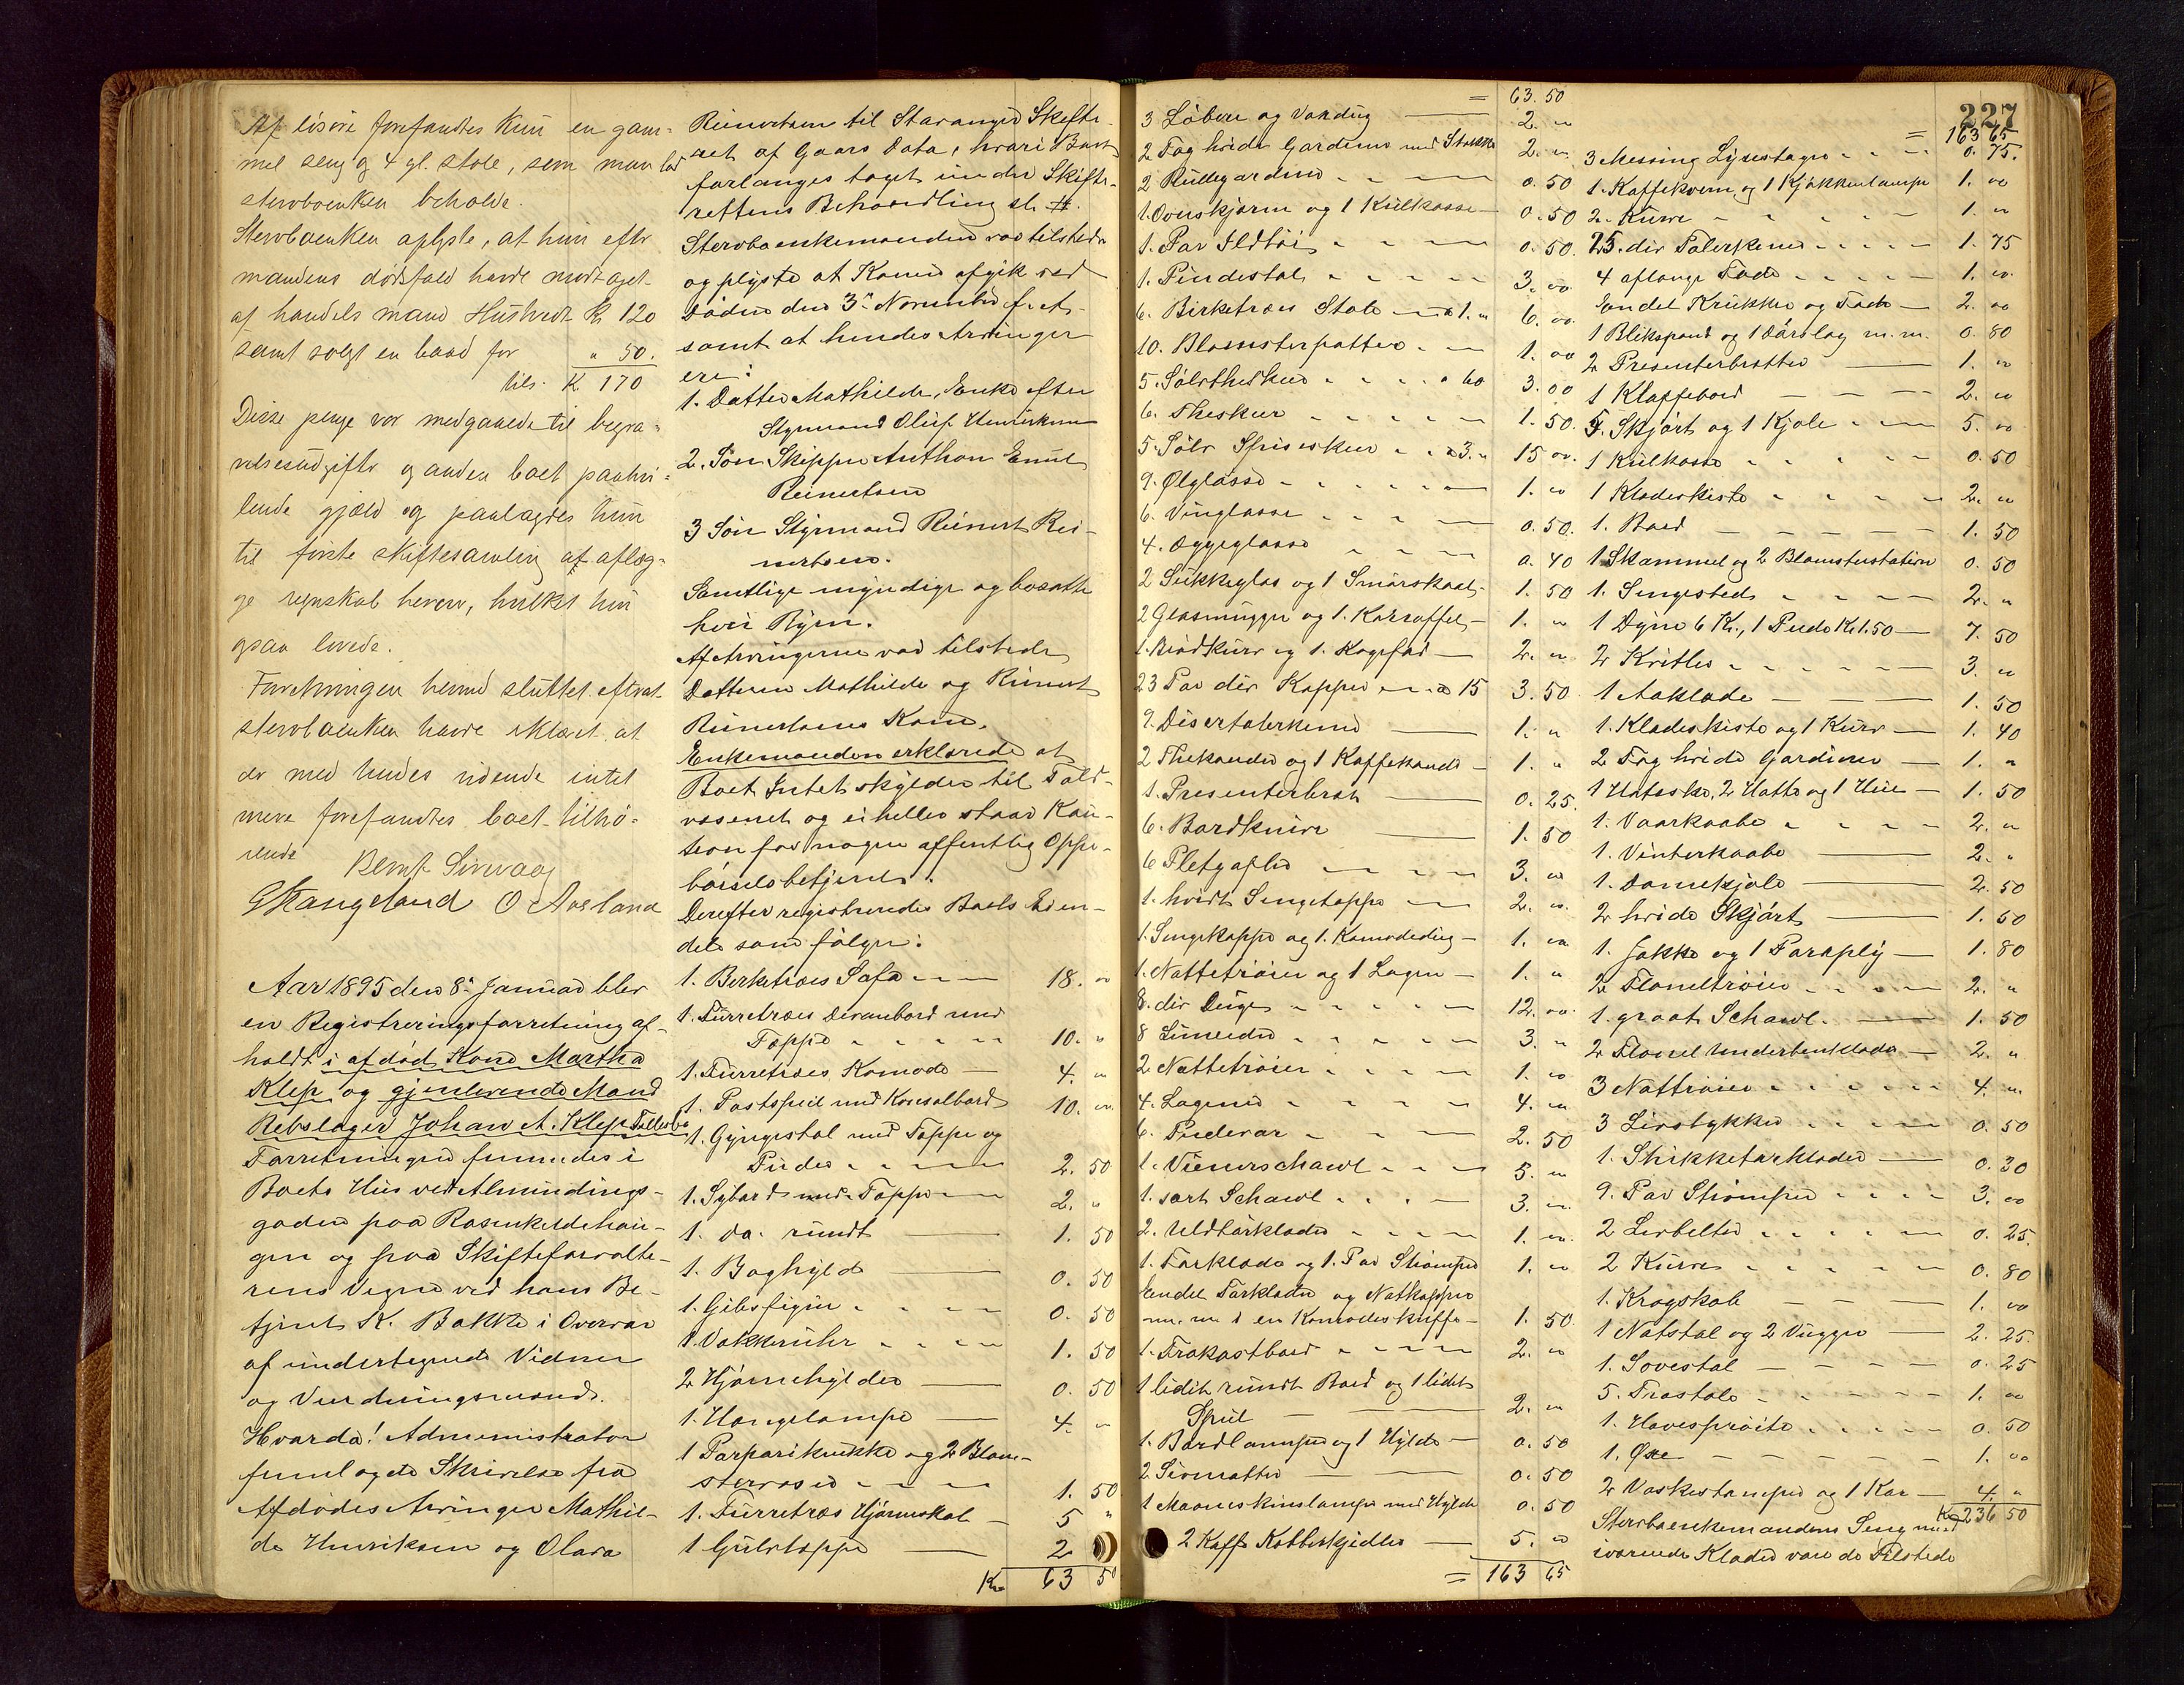 Af løsøre forefandtes kun en gam-
mel seng og 4 gl. stole, som man lod
stervboenken beholde.
Stervboenken oplyste, at hun efter
mandens dødsfald havde modtaget
af handelsmand Hustvedt K 120
samt solgt en baad for " 50.
tils. K. 170
Disse penge var medgaaede til begra-
velsesudgifter og anden boet paahvi-
lende gjæld og paalagdes hun
til første skiftesamling at aflæg-
ge regnskab herover, hvilket hun
ogsaa lovede.
Forretningen hermed sluttet efterat
stervboenken havde erklæret at
der med hendes vidende intet
mere forefandtes boet tilhø-
rende
Bernt Sirevaag
G Stangeland O Aosland
Aar 1895 den 8de Januar blev
en Registreringsforretning af-
holdt i afdød Kone Martha
Klep og gjenlevende Mand
Rebslager Johan A. Klep Fællesbo
Forretningen fremmedes i
Boets Hus ved Almindings-
gaden paa Rosenkildehau-
gen og paa Skifteforvalte-
rens Vegne ved hans Be-
tjent K. Bakke i Overvær
af undertegnede Vidner
og Vurderingsmænd.
Hvorda! Administrator
fremlagde Skrivelse fra
Afdødes Arvinger Mathil-
de Henriksen og Olava
Reinertsen til Stavanger Skifte-
ret af Gaars Dato, hvori Boet
forlanges taget under Skifte-
rettens Behandling sl. #.
Stervboenkemanden var tilstede
og oplyste at Konen afgik ved
Døden den 3de November f. A.
samt at hendes Arvinger
ere:
1. Datter Mathilde, Enke efter
Styrmand Oluf Henriksen
2. Søn Skipper Anthon Emil
Reinertsen
3 Søn Styrmand Reinert Rei-
nertsen.
Samtlige myndige og bosatte
her i Byen.
Af Arvingerne var tilstede
Datteren Mathilde og Reinert
Reinertsens Kone.
Enkemanden erklærede at
Boet Intet skylder til Told-
væsenet og ei heller staar Kau-
tion for nogen offentlig Oppe-
børselsbetjent.
Derefter registreredes Boets Eien-
dele som følger:
1. Berketræes Sofa 18. "
1. Furretræes Devanbord med
Tæppe 10. "
1. Furretræes Komode 4. "
1. Postspeil med Konsolbord 10. "
1. Gyngestol med Tæppe og
Puder 2. 50
1. Sybord med Tæppe 2. "
1. do. rundt 1. 50
1. Boghylde 0. 50
1. Gibsfigur 0. 50
1 Vækkeruhr 1. 50
2 Hjørnehylder 0. 50
1. Hængelampe 4. "
1 Parparikrukke og 2 Blom-
stervaser 1. 50
1. Furretræs Hjørneskab 5 "
1 Gulvtæppe 2
Kr 63 50
= 63. 50
3 Løbere og Voxdug 2. "
2 Fag hvide Gardiner med Stokke 2. "
2 Rullegardiner 0. 50
1. Ovnskjærm og 1 Kulkasse 0. 50
1. Par Ildtøi 0. 50.
1. Pindestol 3. oo
6. Birketræes Stole a 1. " 6. oo.
10. Blomsterpotter 1. oo
5. Sølvtheskeer a 60 3. 00
6. Theskeer 1. 50.
5. Sølv Spiseskeer a 3. " 15 oo.
9. Ølglasse 1. oo
6. Vinglasse 0. 50.
4. Æggeglasse 0. 40
2 Sukkeglas og 1 Smørskaal 1. 50
2 Glasmugger og 1. Karaffel 1. "
1. Brødkurv og 1. Kagefad 2. "
23 Par div Kopper a 15 3. 50
9. Disertalerkener 1. "
2 Thekander og 1 Kaffekande 1. "
1. Presenterbret 0. 25.
6. Bordknive 1. 50
6 Pletgafler 3. oo
1. hvidt Sengetæppe 2. oo.
1. Sengekappe og 1. Komodedug 1. oo
1. Nattetrøier og 1 Lagen 1. "
8. div Duge 12. oo.
8 Linneder 3. "
2 Nattetrøier 1. oo
4. Lagener 4. "
6. Pudevar 2. 50
1. Vienerschawl 5. "
1. sort Schawl 3. "
2. Uldtørklæder 1. oo.
1. Tørklæde og 1. Par Strømper 1. oo
Endel Tørklæder og Natkapper
m. m i en Komodeskuffe 1. 50.
1. Frokostbord 2. oo
1 lidet rundt Bord og 1 lidet
Speil 2. "
1. Bordlampe og 1 Hylde 0. 50
2. Sivmatter 0. 50
1 Maaneskinslampe med Hylde 0. 50
2 Kaffe Kobberkjedler 5. oo
= 163 65
227
= 163 65
3 Messing Lysestager 0. 75.
1. Kaffekvern og 1 Kjøkkenlampe 1. oo
2. Kurve 1. "
25. div Talerkener 1. 75
4 aflange Fade 1. oo.
Endel Krukker og Fade 2. oo
1 Blikspand og 1 Dørslag m. m. 0. 80
2 Presenterbretter 1. "
1 Klappebord 2. oo
5. Skjørt og 1 Kjole 5. oo
1 Kulkasse 0. 50
1 Klædeskiste 2. "
1. Bord 1. 50
1 Skammel og 2 Blomsterstativer 0. 50
1. Sengested 2. "
1 Dyne 6 Kr., 1 Pude Kr 1.50 7. 50
2 Kvitler 3. "
1 Aaklæde 1. 50
1. Klædeskiste og 1 Kurv 1. 40
2 Fag hvide Gardiner 1. "
1 Hateske, 2 Hatte og 1 Hue 1. 50
1. Vaarkaabe 2. "
1. Vinterkaabe 2. "
1. Damekjole 2. 50
2 hvide Skjørt 1. 50
1. Jakke og 1 Paraply 1. 80
2 Flonelstrøier 2. "
1. graat Schawl 1. 50
2 Flonel Underbenklæder 2. "
3 Nattrøier 4. "
3 Livstykker 0. 50
1. Strikketørklæder 0. 30
9. Par Strømper 3. oo
2 Livbelter 0. 25.
2 Kurve 0. 80
1. Krogskab 1. oo
1 Natstol og 2 Vugger 2. 25.
1. Sovestol 0. 25
5. Træstole 1. oo
1. Havesprøite 0. 50
1. Øxe 1. oo
2 Vaskestamper og 1 Kar 4. "
Kr 236 50
Stervboenkemandens Seng med
iværende Klæder vare de Tilstede